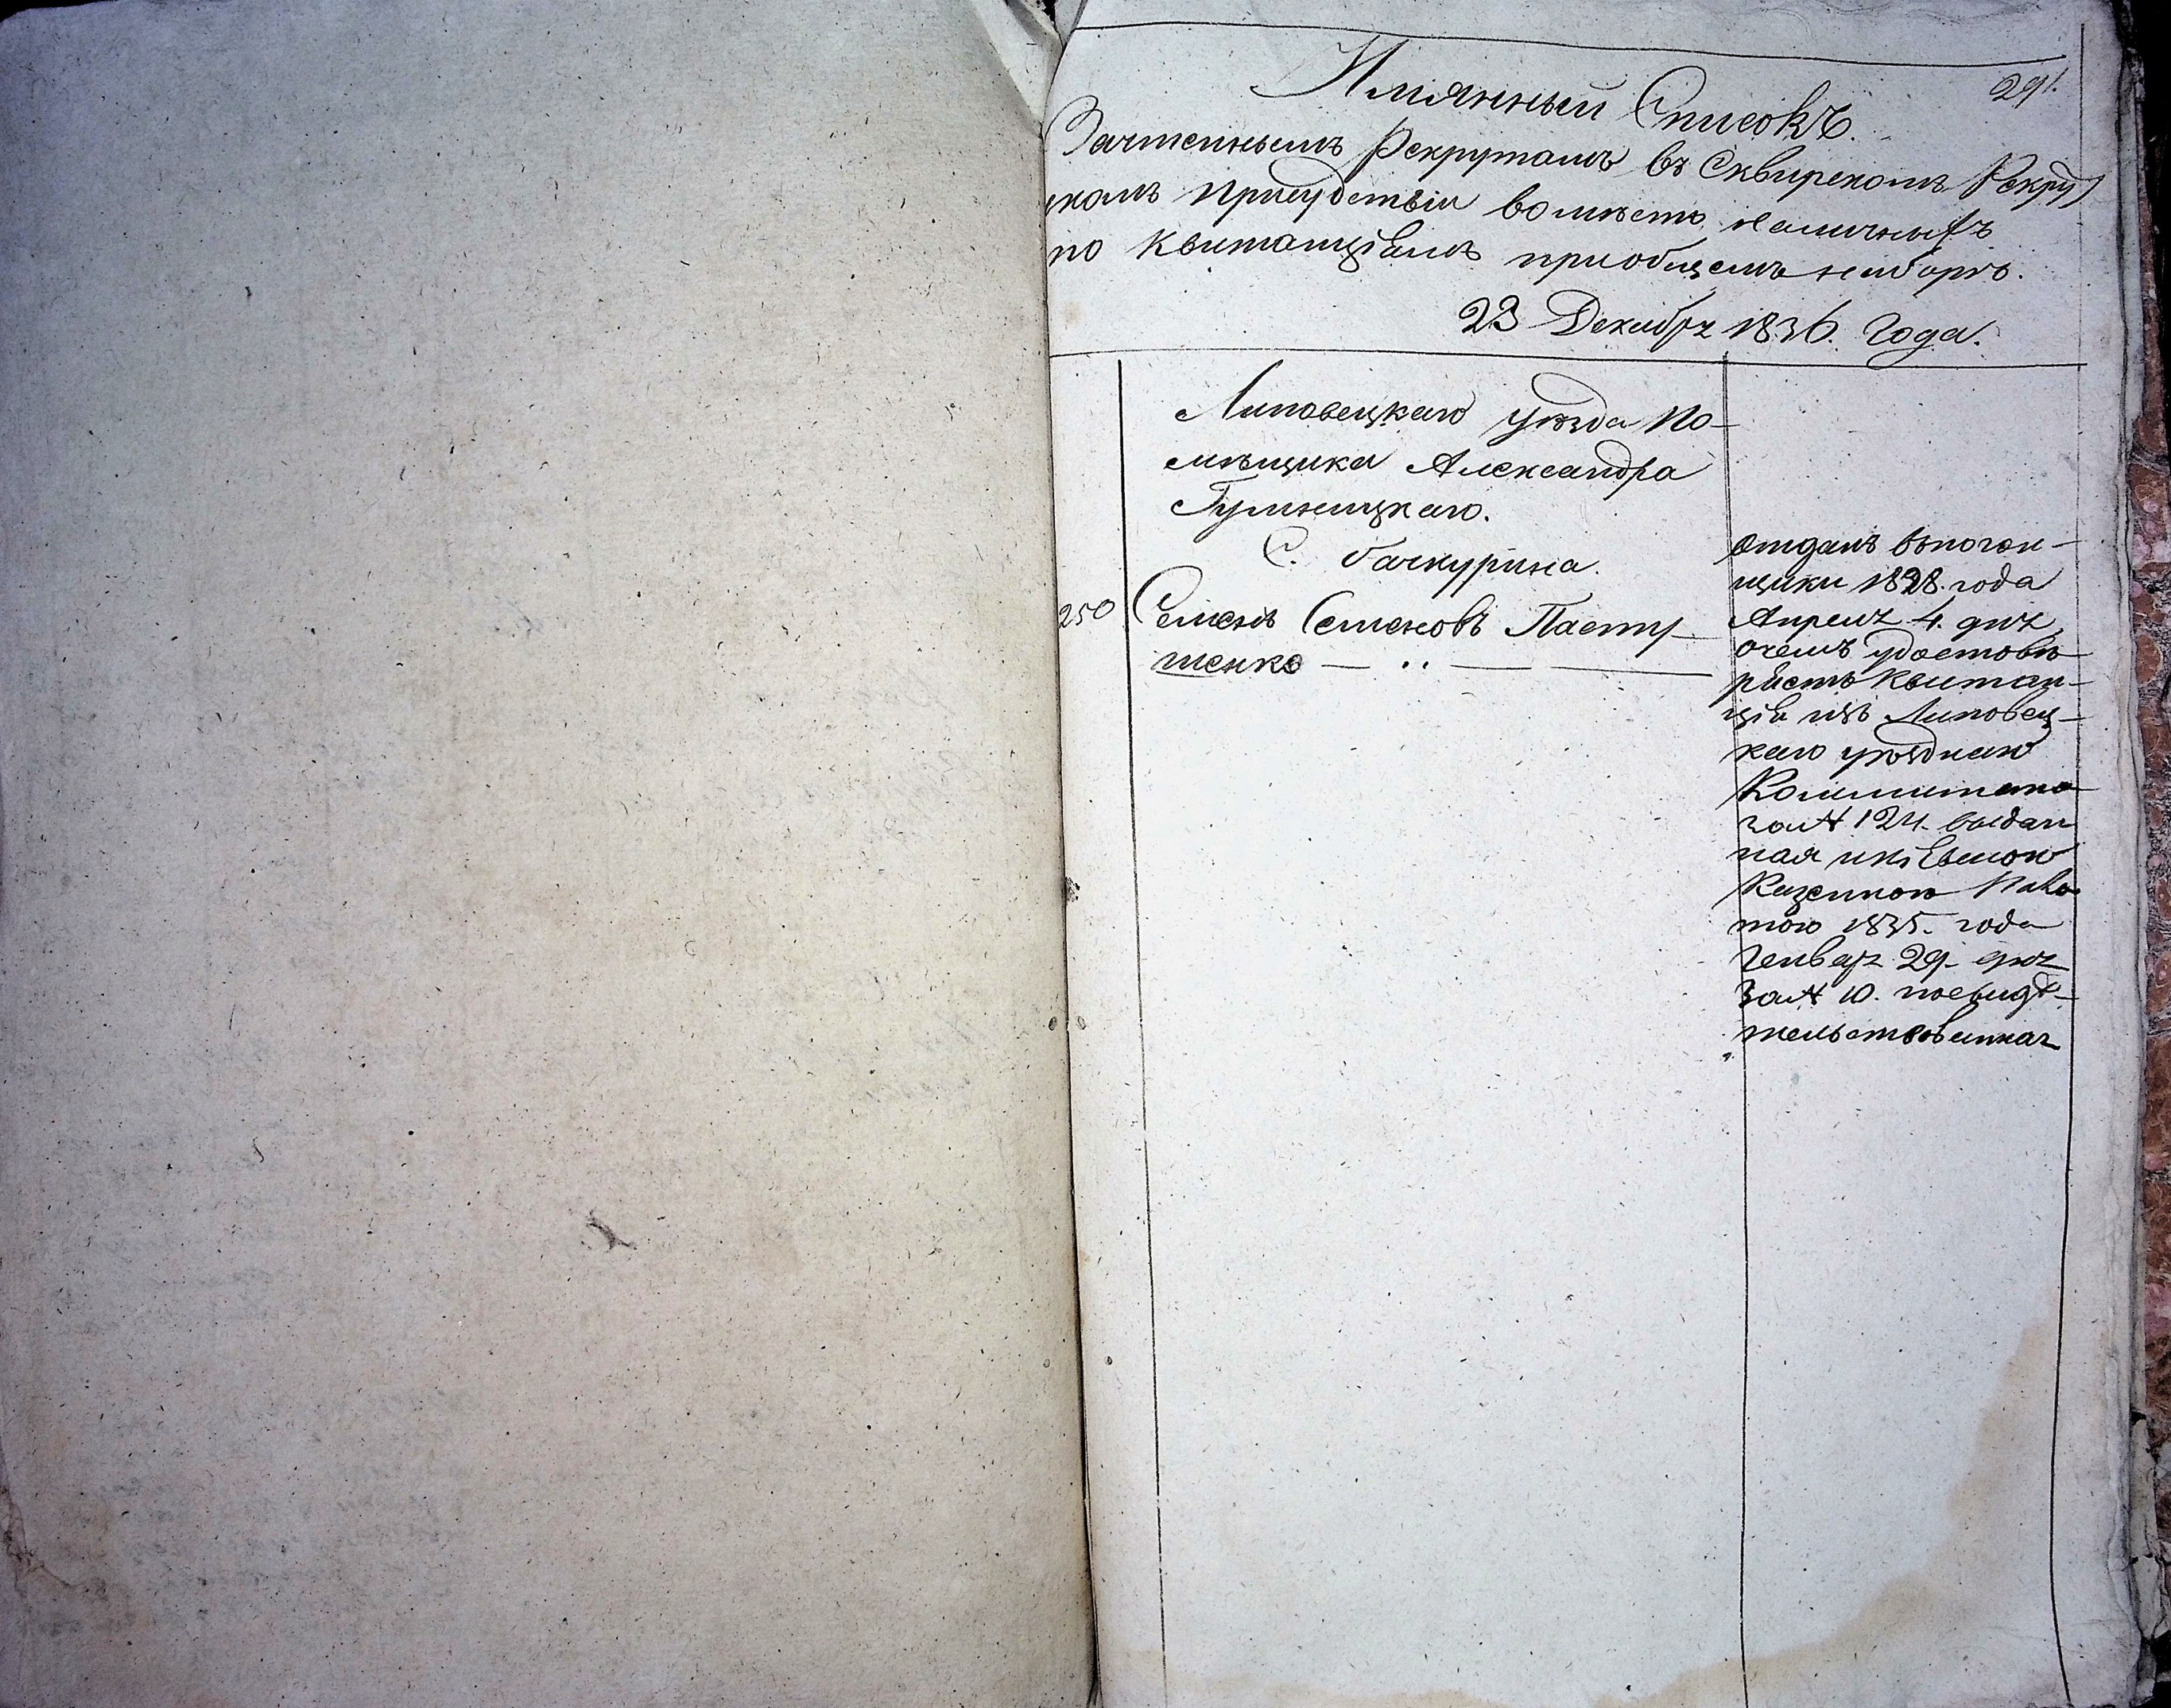 291.
Имянный Списокъ.
Зачтеннымъ Рекрутамъ въ Сквирскомъ Рекру
скомъ присудствіи вомѣсто наличныхъ
по Квитанціямъ приобщемъ наборѣ.
23 Декабря 1836. Года.
Липовецкаго уѣзда По-
мѣщика Александра
Гумницкаго.
С. Бачкурина.
250 Семенъ Семеновъ Пасту-
шенко
отданъ впогон-
щики 1828. года
Апреля 4. дня
очемъ удостовѣ-
ряетъ Квитан-
ція изъ Липовец-
каго уѣзднаго
Коммитета
за № 124. выдан
ная и Кіевскою
Казенною Пала-
тою 1835. года
Генваря 29. дня
за № 10. посвидѣ-
тельствованная